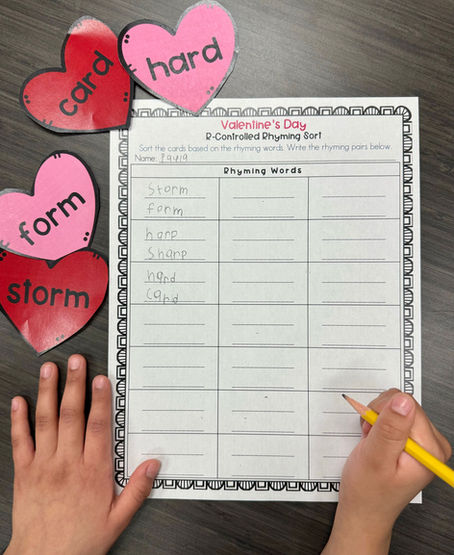 card
hard
form
storm
Valentine's Day
R-Controlled Rhyming Sort
Sort the cards based on the rhyming words. Write the rhyming pairs below.
Name:
Rhyming Words
Storm
form
harp
Sharp
hard
card